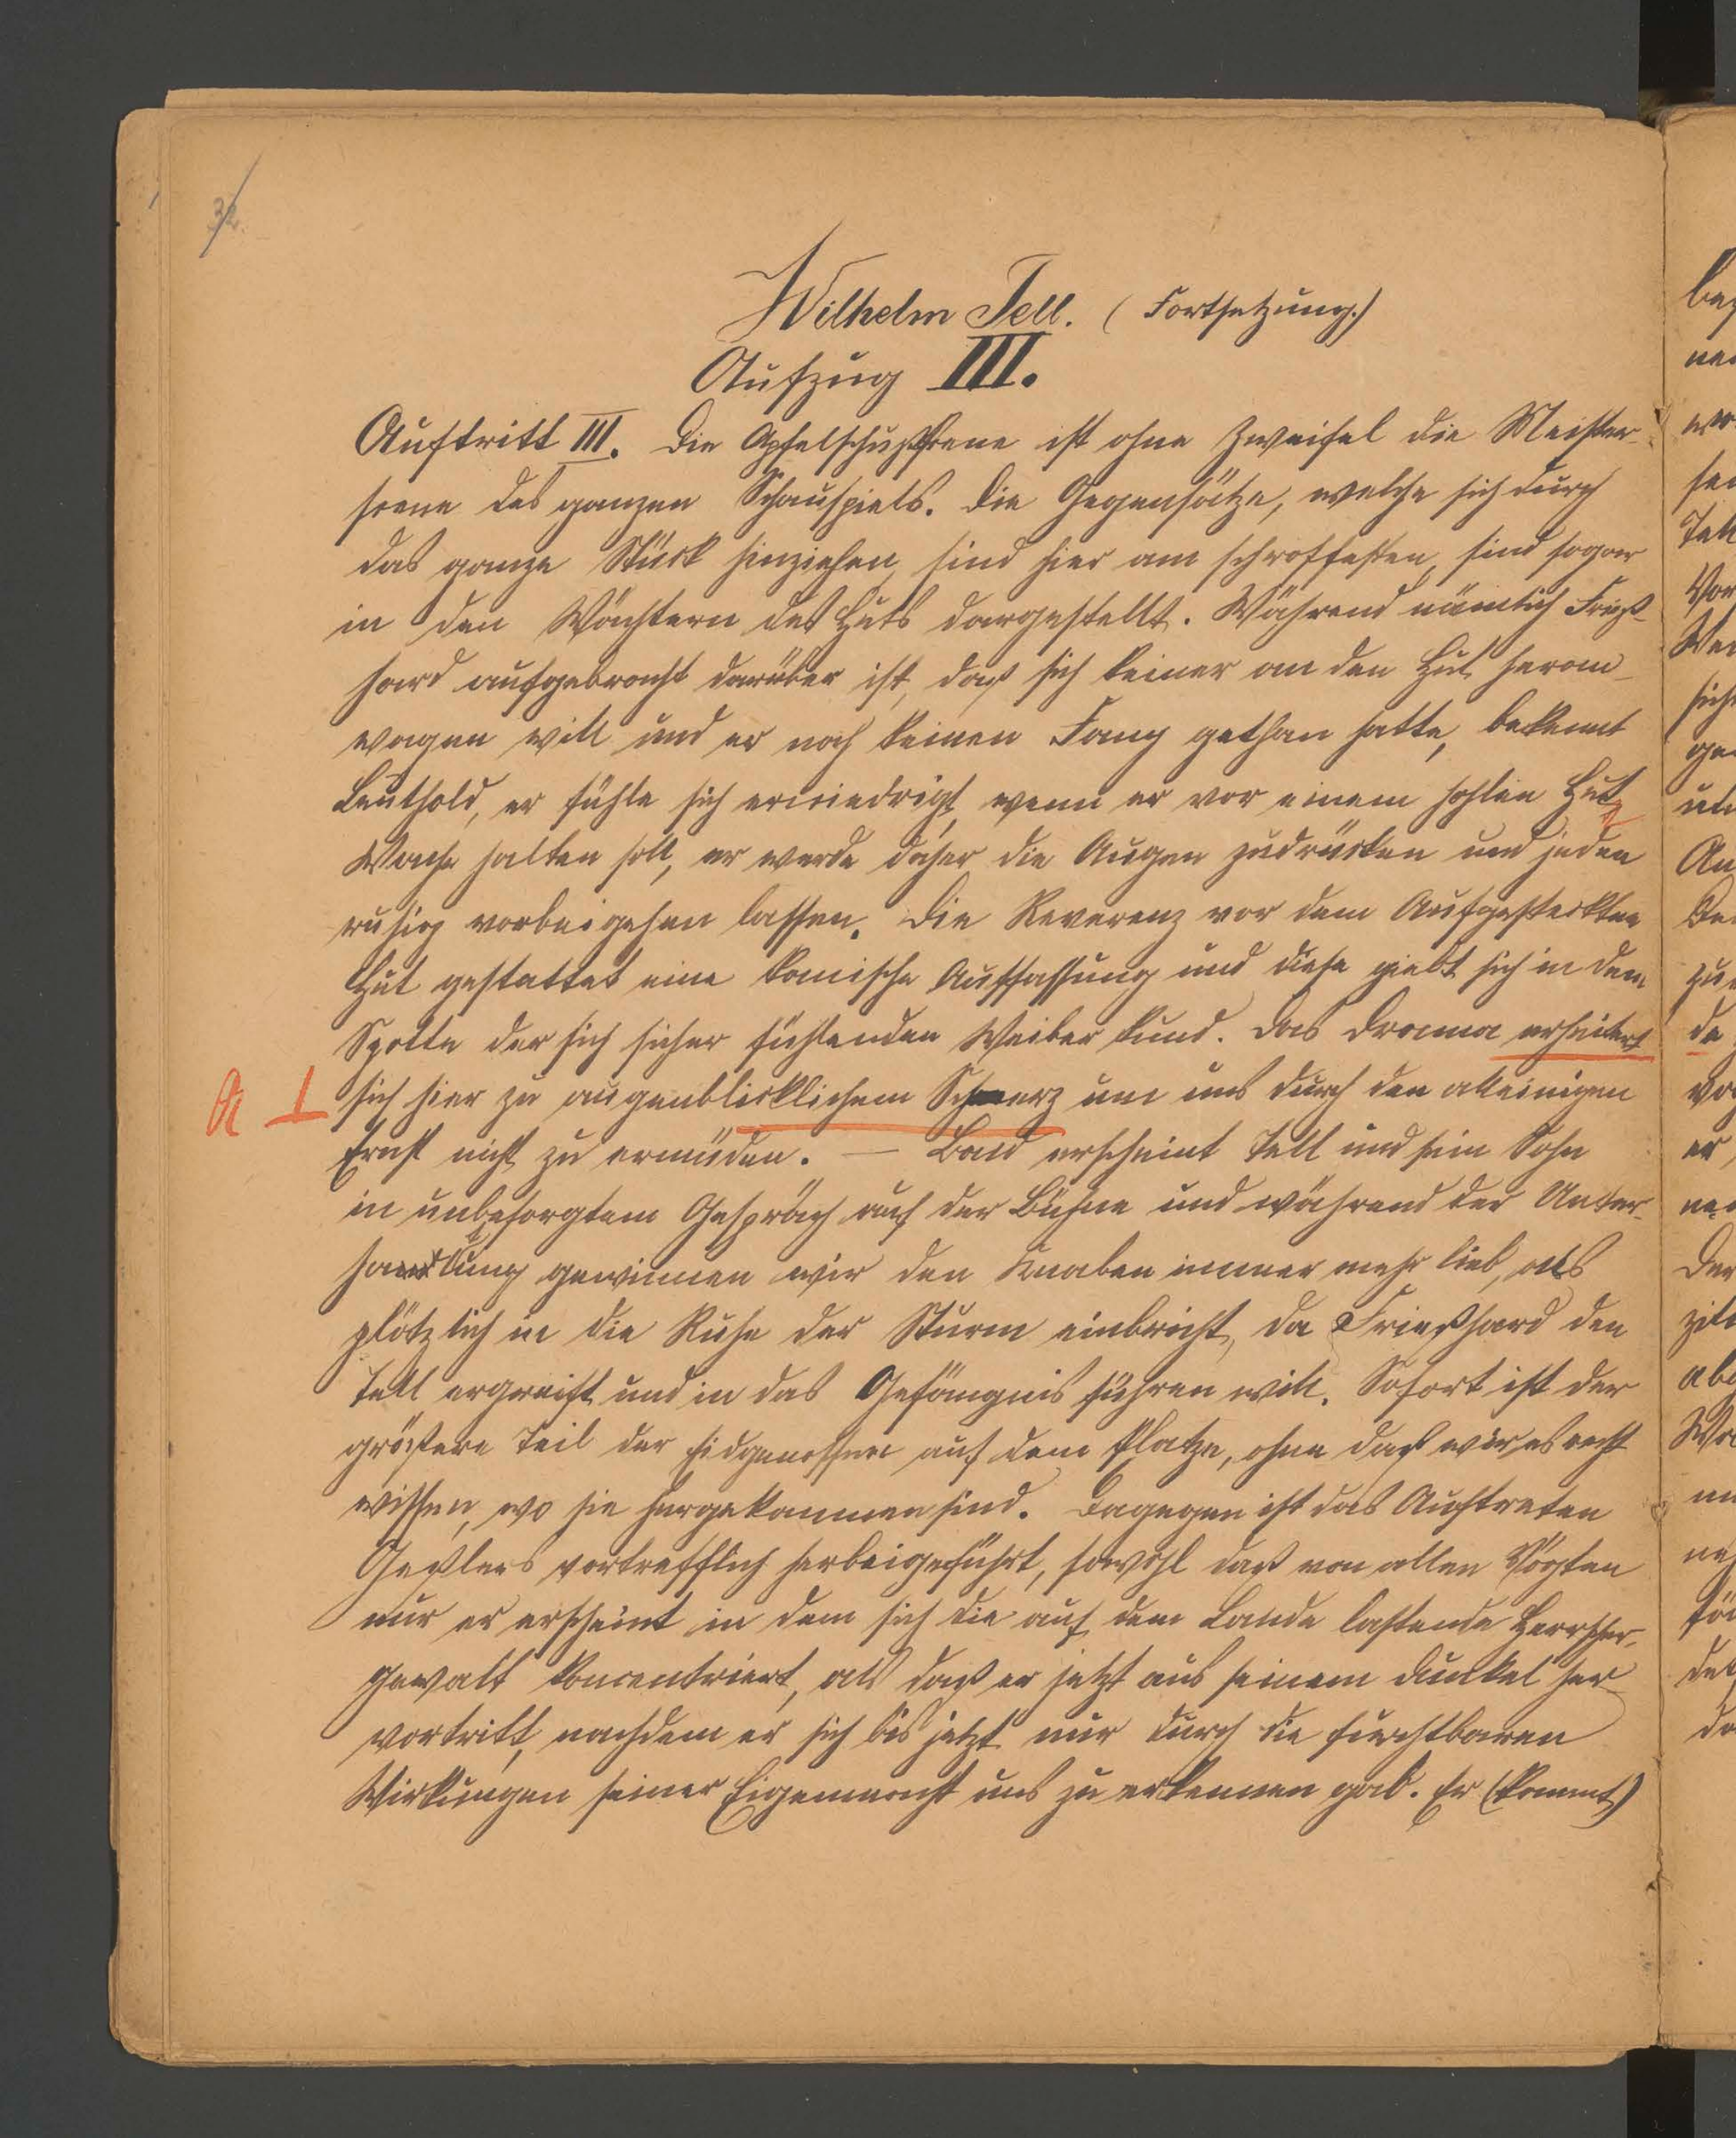 32.
Wilhelm Tell. (Fortsetzung.)
Aufzug III.
Auftritt III. Die Apfelschußscene ist ohne Zweifel die Meister-
scene des ganzen Schauspiels. Die Gegensätze, welche sich durch
das ganze Stück hinziehen, sind hier am schroffesten, sind sogar
in den Wächtern des Huts dargestellt. Während nämlich Frieß-
hard aufgebracht darüber ist, daß sich keiner an den Hut heran-
wagen will und er noch keinen Fang gethan hatte, bekennt
Leuthold, er fühle sich erniedrigt, wenn er vor einem hohlen Hut
Wache halten soll, er werde daher die Augen zudrücken und jeden
ruhig vorbeigehen lassen. Die Reverenz vor dem Aufgesteckten
Hut gestattet eine komische Auffassung und diese giebt sich in dem
Spotte der sich sicher fühlenden Weiber kund. Das Drama erheitert
sich hier zu augenblicklichem Scherz um uns durch den alleinigen
Ernst nicht zu ermüden. — Bald erscheint Tell und sein Sohn
in unbesorgtem Gespräch auf der Bühne und während der Unter-
haltung gewinnen wir den Knaben immer mehr lieb, als
plötzlich in die Ruhe der Sturm einbricht, da Frießhard den
Tell ergreift und in das Gefängnis führen will. Sofort ist der
größere Teil der Eidgenossen auf dem Platze, ohne daß wir es recht
wissen, wo sie hergekommen sind. Dagegen ist das Auftreten
Geßlers vortrefflich herbeigeführt, sowohl daß von allen Vögten
nur er erscheint in dem sich die auf dem Lande lastende Herrscher-
gewalt koncentriert, als daß er jetzt aus seinem Dunkel her-
vortritt, nachdem er sich bis jetzt nur durch die furchtbaren
Wirkungen seiner Eigenmacht uns zu erkennen gab. Er (kommt)